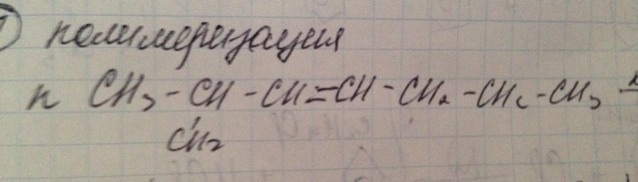 полимеризация
n CH₃ - CH - CH = CH - CH₂ - CH₂ - CH₃
CH₃